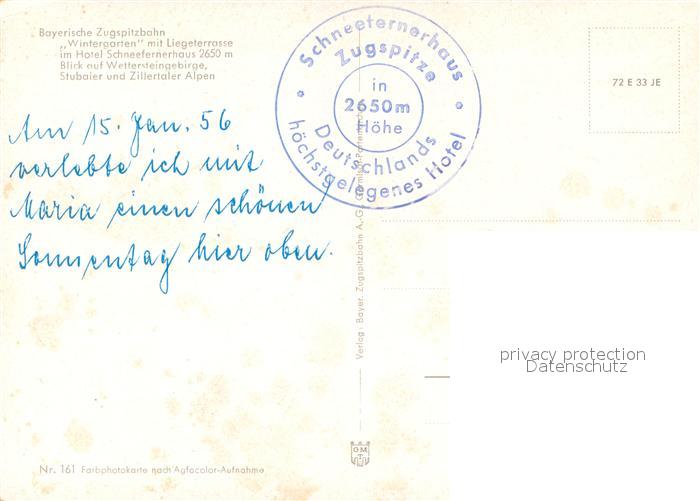 Bayerische Zugspitzbahn
„Wintergarten" mit Liegeterrasse
im Hotel Schneefernerhaus 2650 m
Blick auf Wettersteingebirge,
Stubaier und Zillertaler Alpen
Schneefernerhaus
Zugspitze
in
2650m
Höhe
Deutschlands
höchstgelegenes Hotel
72 E 33 JE
Am 15. Jan. 56
verlebte ich mit
Maria einen schönen
Sonnentag hier oben.
Verlag: Bayer. Zugspitzbahn A.-G.
privacy protection
Datenschutz
GM
Nr. 161 Farbphotokarte nach Agfacolor-Aufnahme